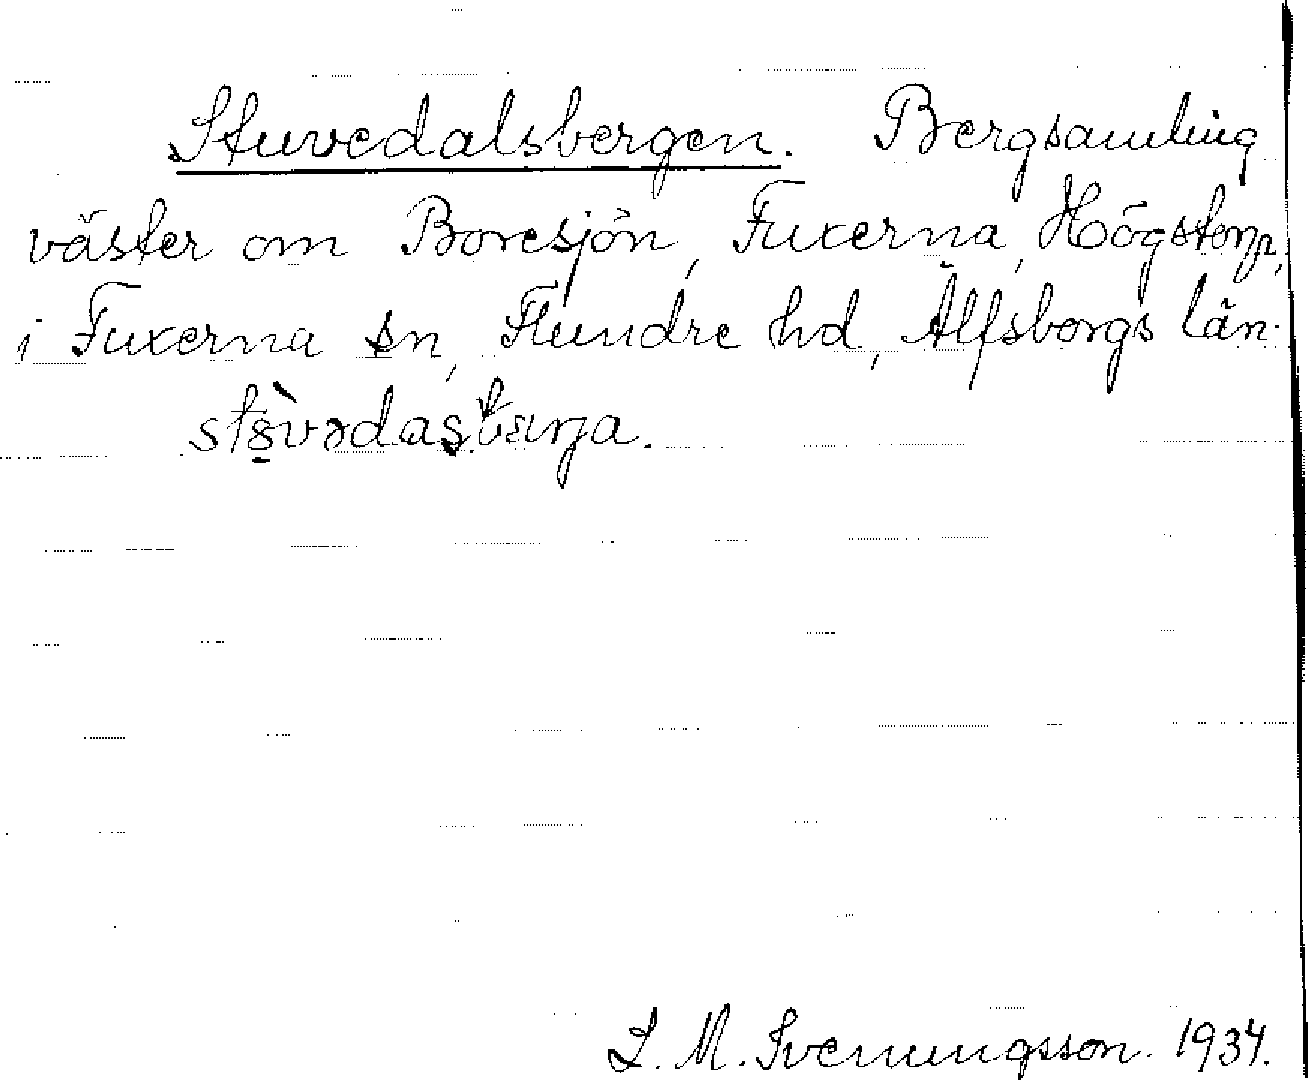 Stuvedalsbergen. Bergsamling
väster om Boresjön, Fuxerna, Högstorp,
i Fuxerna sn, Flundre hd, Älfsborgs län.
L. M. Svenungsson. 1934.